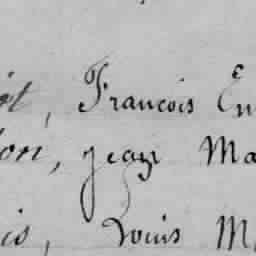 François En
jean Ma
Louis M